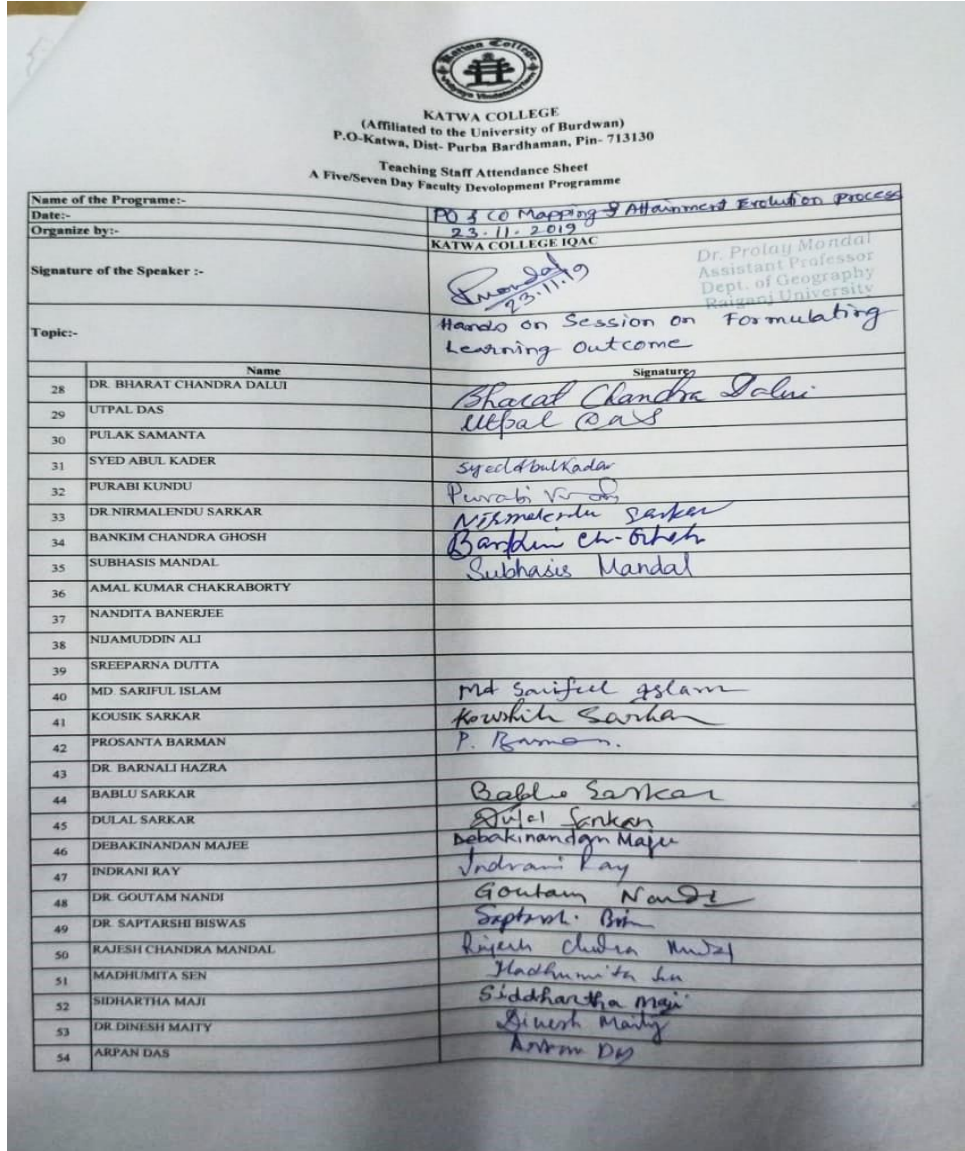 Katwa College
KATWA COLLEGE
(Affiliated to the University of Burdwan)
P.O-Katwa, Dist- Purba Bardhaman, Pin- 713130
Teaching Staff Attendance Sheet
A Five/Seven Day Faculty Devolopment Programme
Name of the Programe:- PO & CO Mapping & Attainment Evolution Process
Date:- 23.11.2019
Organize by:- KATWA COLLEGE IQAC
Signature of the Speaker :- 23.11.19
Dr. Prolay Mondal
Assistant Professor
Dept. of Geography
Raiganj University
Topic:- Hands on Session on Formulating
Learning Outcome
Name Signature
28 DR. BHARAT CHANDRA DALUI Bharat Chandra Dalui
29 UTPAL DAS Utpal Das
30 PULAK SAMANTA
31 SYED ABUL KADER Syed Abul Kadar
32 PURABI KUNDU Purabi
33 DR.NIRMALENDU SARKAR Nirmalendu Sarkar
34 BANKIM CHANDRA GHOSH Bankim Ch- Ghosh
35 SUBHASIS MANDAL Subhasis Mandal
36 AMAL KUMAR CHAKRABORTY
37 NANDITA BANERJEE
38 NIJAMUDDIN ALI
39 SREEPARNA DUTTA
40 MD. SARIFUL ISLAM Md Sariful Islam
41 KOUSIK SARKAR Kowshik Sarkar
42 PROSANTA BARMAN P. Barman.
43 DR. BARNALI HAZRA
44 BABLU SARKAR Bablu Sarkar
45 DULAL SARKAR Dulal Sarkar
46 DEBAKINANDAN MAJEE Debakinandan Majee
47 INDRANI RAY Indrani Ray
48 DR. GOUTAM NANDI Goutam Nandi
49 DR. SAPTARSHI BISWAS
50 RAJESH CHANDRA MANDAL Rajesh Chandra Mandal
51 MADHUMITA SEN Madhumita Sen
52 SIDHARTHA MAJI Siddhartha Maji
53 DR.DINESH MAITY Dinesh Maity
54 ARPAN DAS Arpan Das